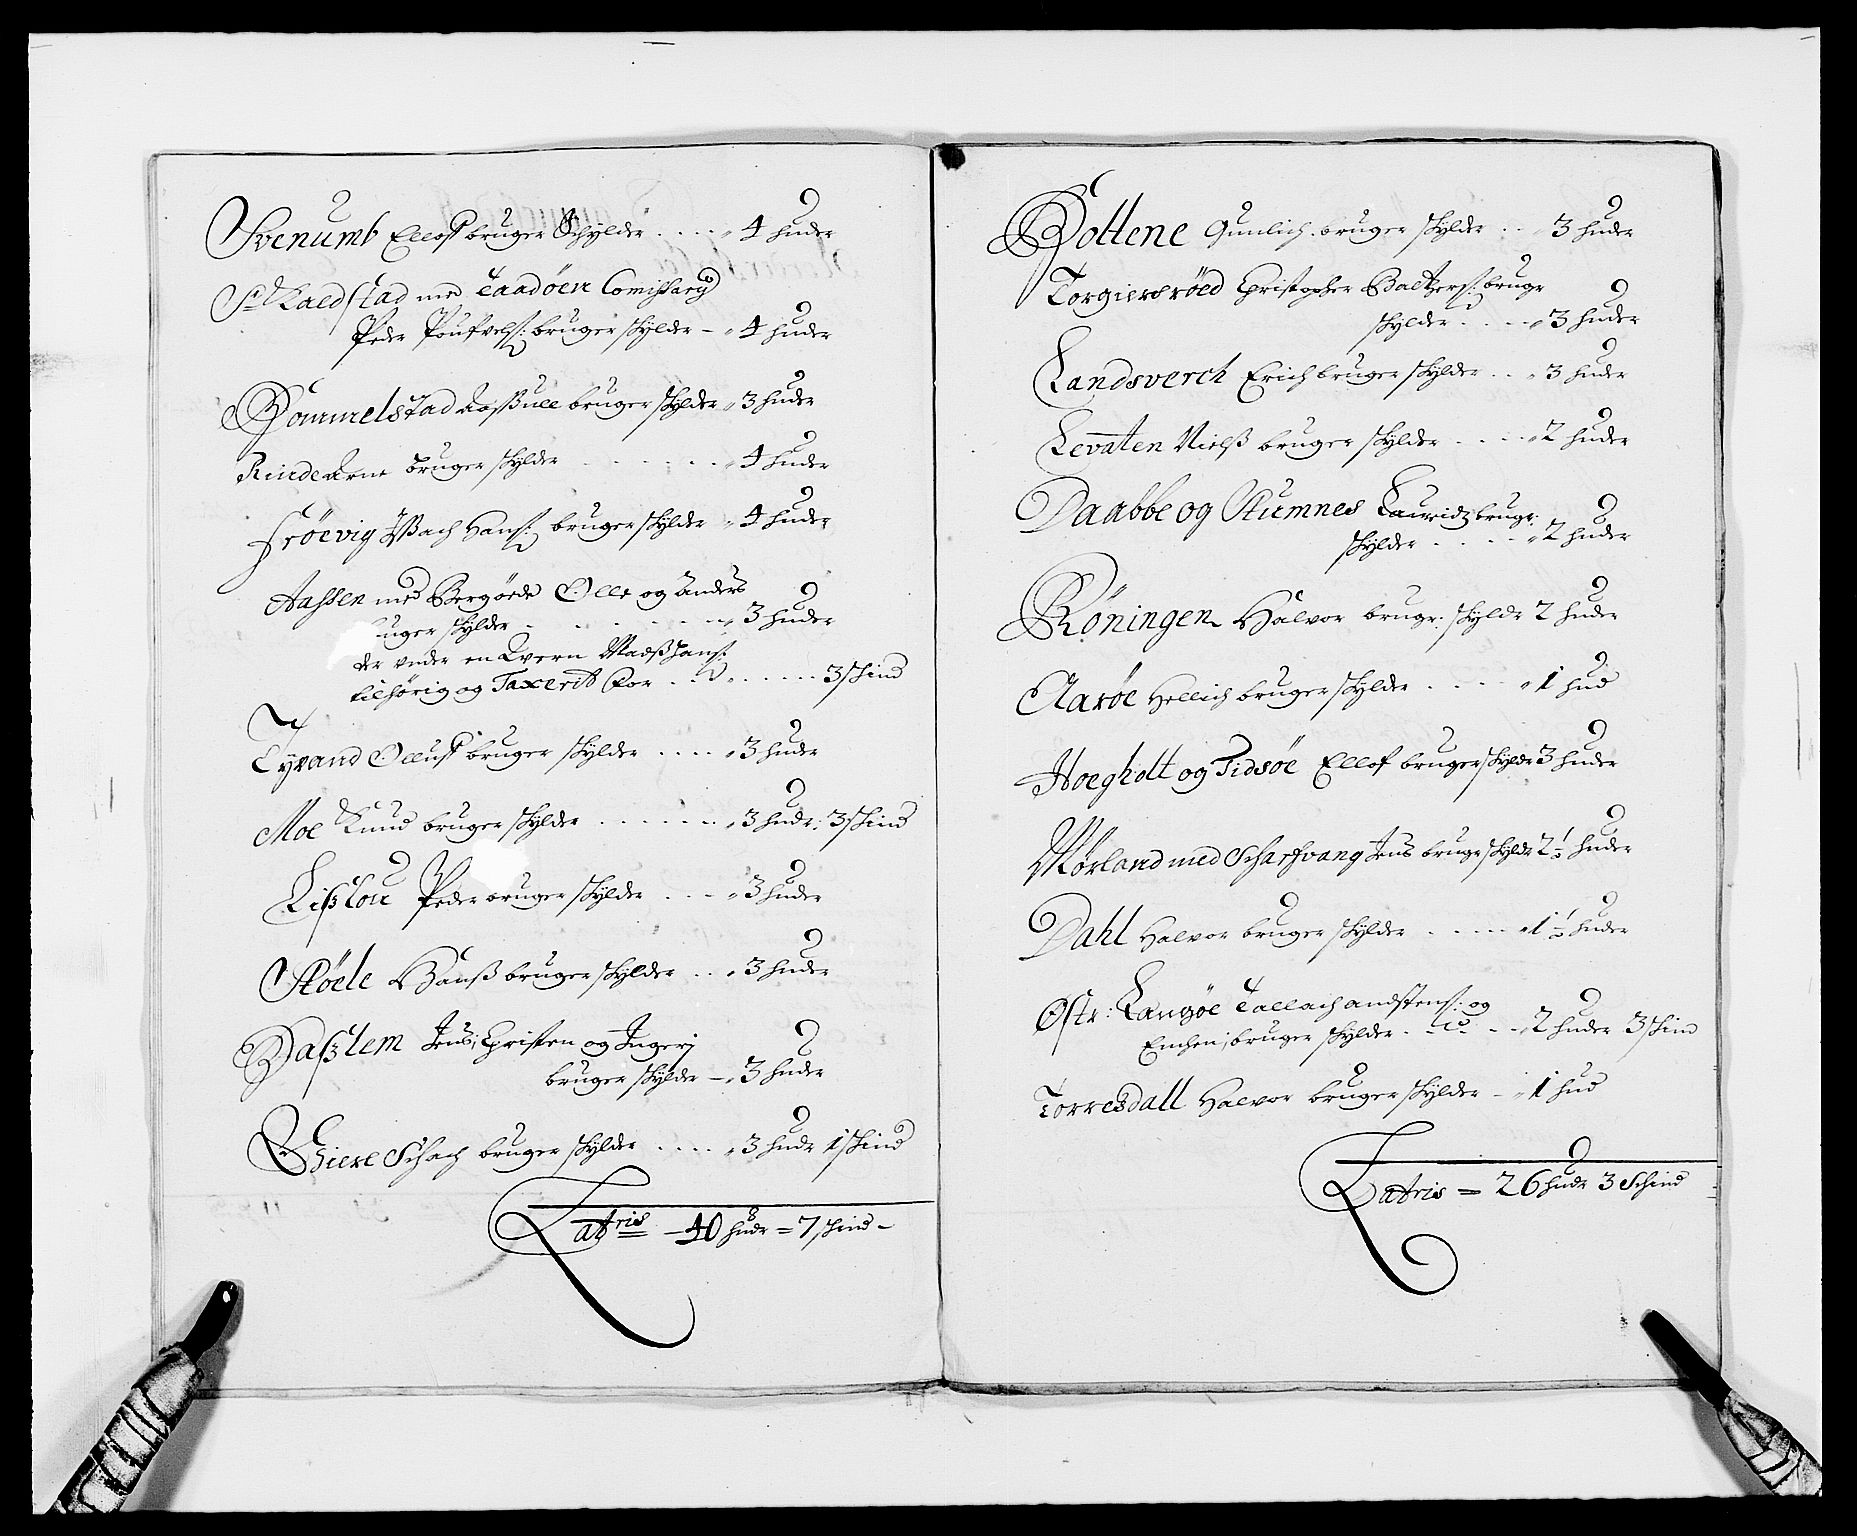 Svenumb Elloff bruger Schylder . . . . 4 huder
med Taadöen Comissary
Peder Poufvels: bruger skylder – 4 huder
Rommelstad Aassull bruger skylder 3 huder
Rinde Arne bruger skylder . . . . . . 4 huder
Fröevig Isach Hans: bruger skylder 4 huder
Aassen med Bergöede Olle og Anders
bruger skylder . . . . . . 3 huder
der under en Qvern Madß Hans:
tilhörig og Taxerit for . . . . . . . 3 skind
Tyrand Olluff bruger skylder . . . . 3 huder
Moe Knud bruger skylder . . . . . . 3 hudr: 3 skind
Lißlou Peder bruger skylder . . . 3 huder
Stöele Hanß bruger skylder . . . 3 huder
Haßlem Jens, Christen og Ingerj
bruger skylder – 3 huder
Giere Schach bruger skylder . . . . 3 hudr 1 skind
Latris – 40 hudr = 7 skind –
Bottene Gunlich bruger skylder . . . 3 huder
Torgiersröed Christopher Baltzers: bruger
skylder . . . . 3 huder
Landsverch Erich bruger skylder . . . 3 huder
Levaten Nielß bruger skylder . . . . 2 huder
Daabbe og Stumnes Lauridz bruger
skylder . . . . . 2 huder
Röningen Halvor brugr: skyldr 2 huder
Aaröe Hellich bruger skylder . . . . 1 hud
Hoegholt og Tidsöe Ellof bruger skyldr 3 huder
Mörland med Scharfvang Jens bruger skyldr 2 1/2 huder
Dahl Halvor bruger skylder . . . . . 1 1/2 huder
Østr: Langöe Tallach andstens: og
Emchen, bruger skylder . . . . 2 huder 3 skind
Torresdall Halvor bruger skylder – 1 hud
Latris = 26 hudr 3 Schind